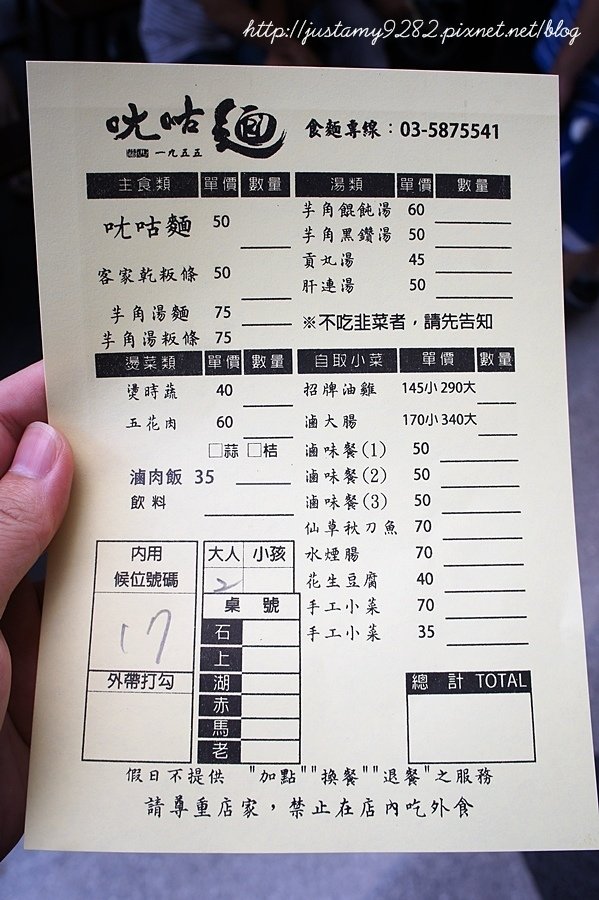 http://justamy9282.pixnet.net/blog
吠咕麵
一九五五
食麵專線：03-5875541
主食類 單價 數量
吠咕麵 50
客家乾粄條 50
芋角湯麵 75
芋角湯粄條 75
湯類 單價 數量
芋角餛飩湯 60
芋角黑鑽湯 50
貢丸湯 45
肝連湯 50
※不吃韭菜者，請先告知
燙菜類 單價 數量
燙時蔬 40
五花肉 60
□蒜 □桔
滷肉飯 35
飲料
自取小菜 單價 數量
招牌油雞 145小 290大
滷大腸 170小 340大
滷味餐(1) 50
滷味餐(2) 50
滷味餐(3) 50
仙草秋刀魚 70
水煙腸 70
花生豆腐 40
手工小菜 70
手工小菜 35
內用
候位號碼
17
外帶打勾
大人 小孩
2
桌號
石
上
湖
赤
馬
老
總計 TOTAL
假日不提供 "加點""換餐""退餐"之服務
請尊重店家，禁止在店內吃外食